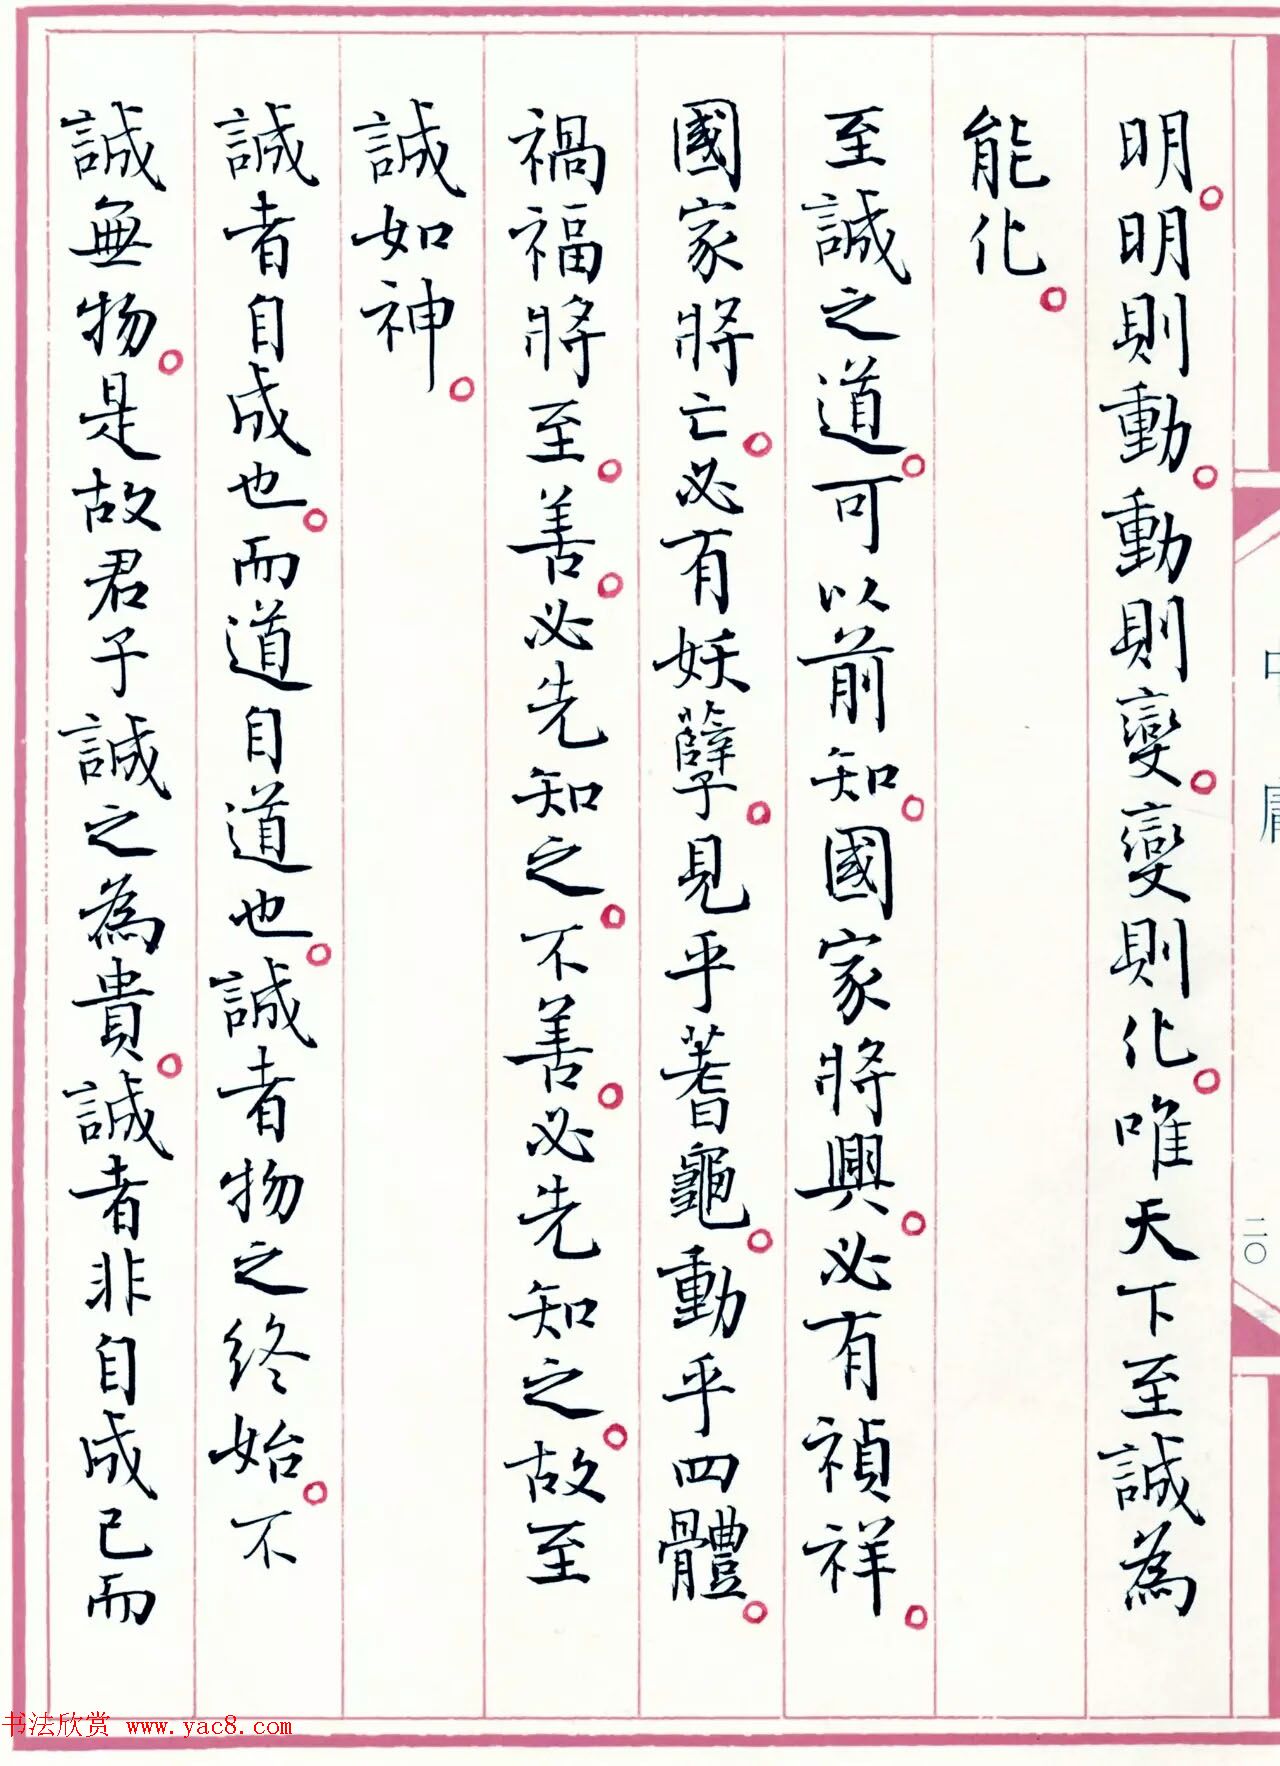 明。明則動。動則變。變則化。唯天下至誠為
能化。
至誠之道。可以前知。國家將興。必有禎祥。
國家將亡。必有妖孽。見乎蓍龜。動乎四體。
禍福將至。善。必先知之。不善。必先知之。故至
誠如神。
誠者自成也。而道自道也。誠者物之終始。不
誠無物。是故君子誠之為貴。誠者非自成己而
二〇
书法欣赏 www.yac8.com